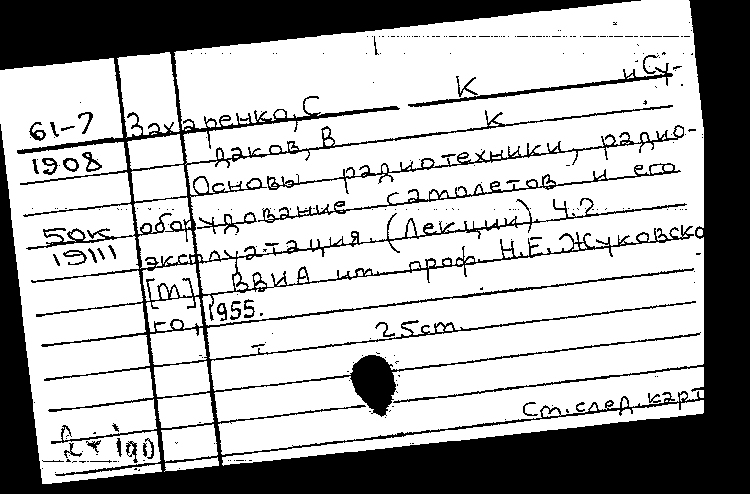 61-7 Захаренко, С К и Су-
1908 даков, В К
Основы радиотехники, радио-
50к оборудование самолетов и его
19111 эксплуатация. (Лекции). Ч.2
[М.], ВВИА им. проф. Н.Е. Жуковско
го, 1955.
25см.
См. след. карт
190